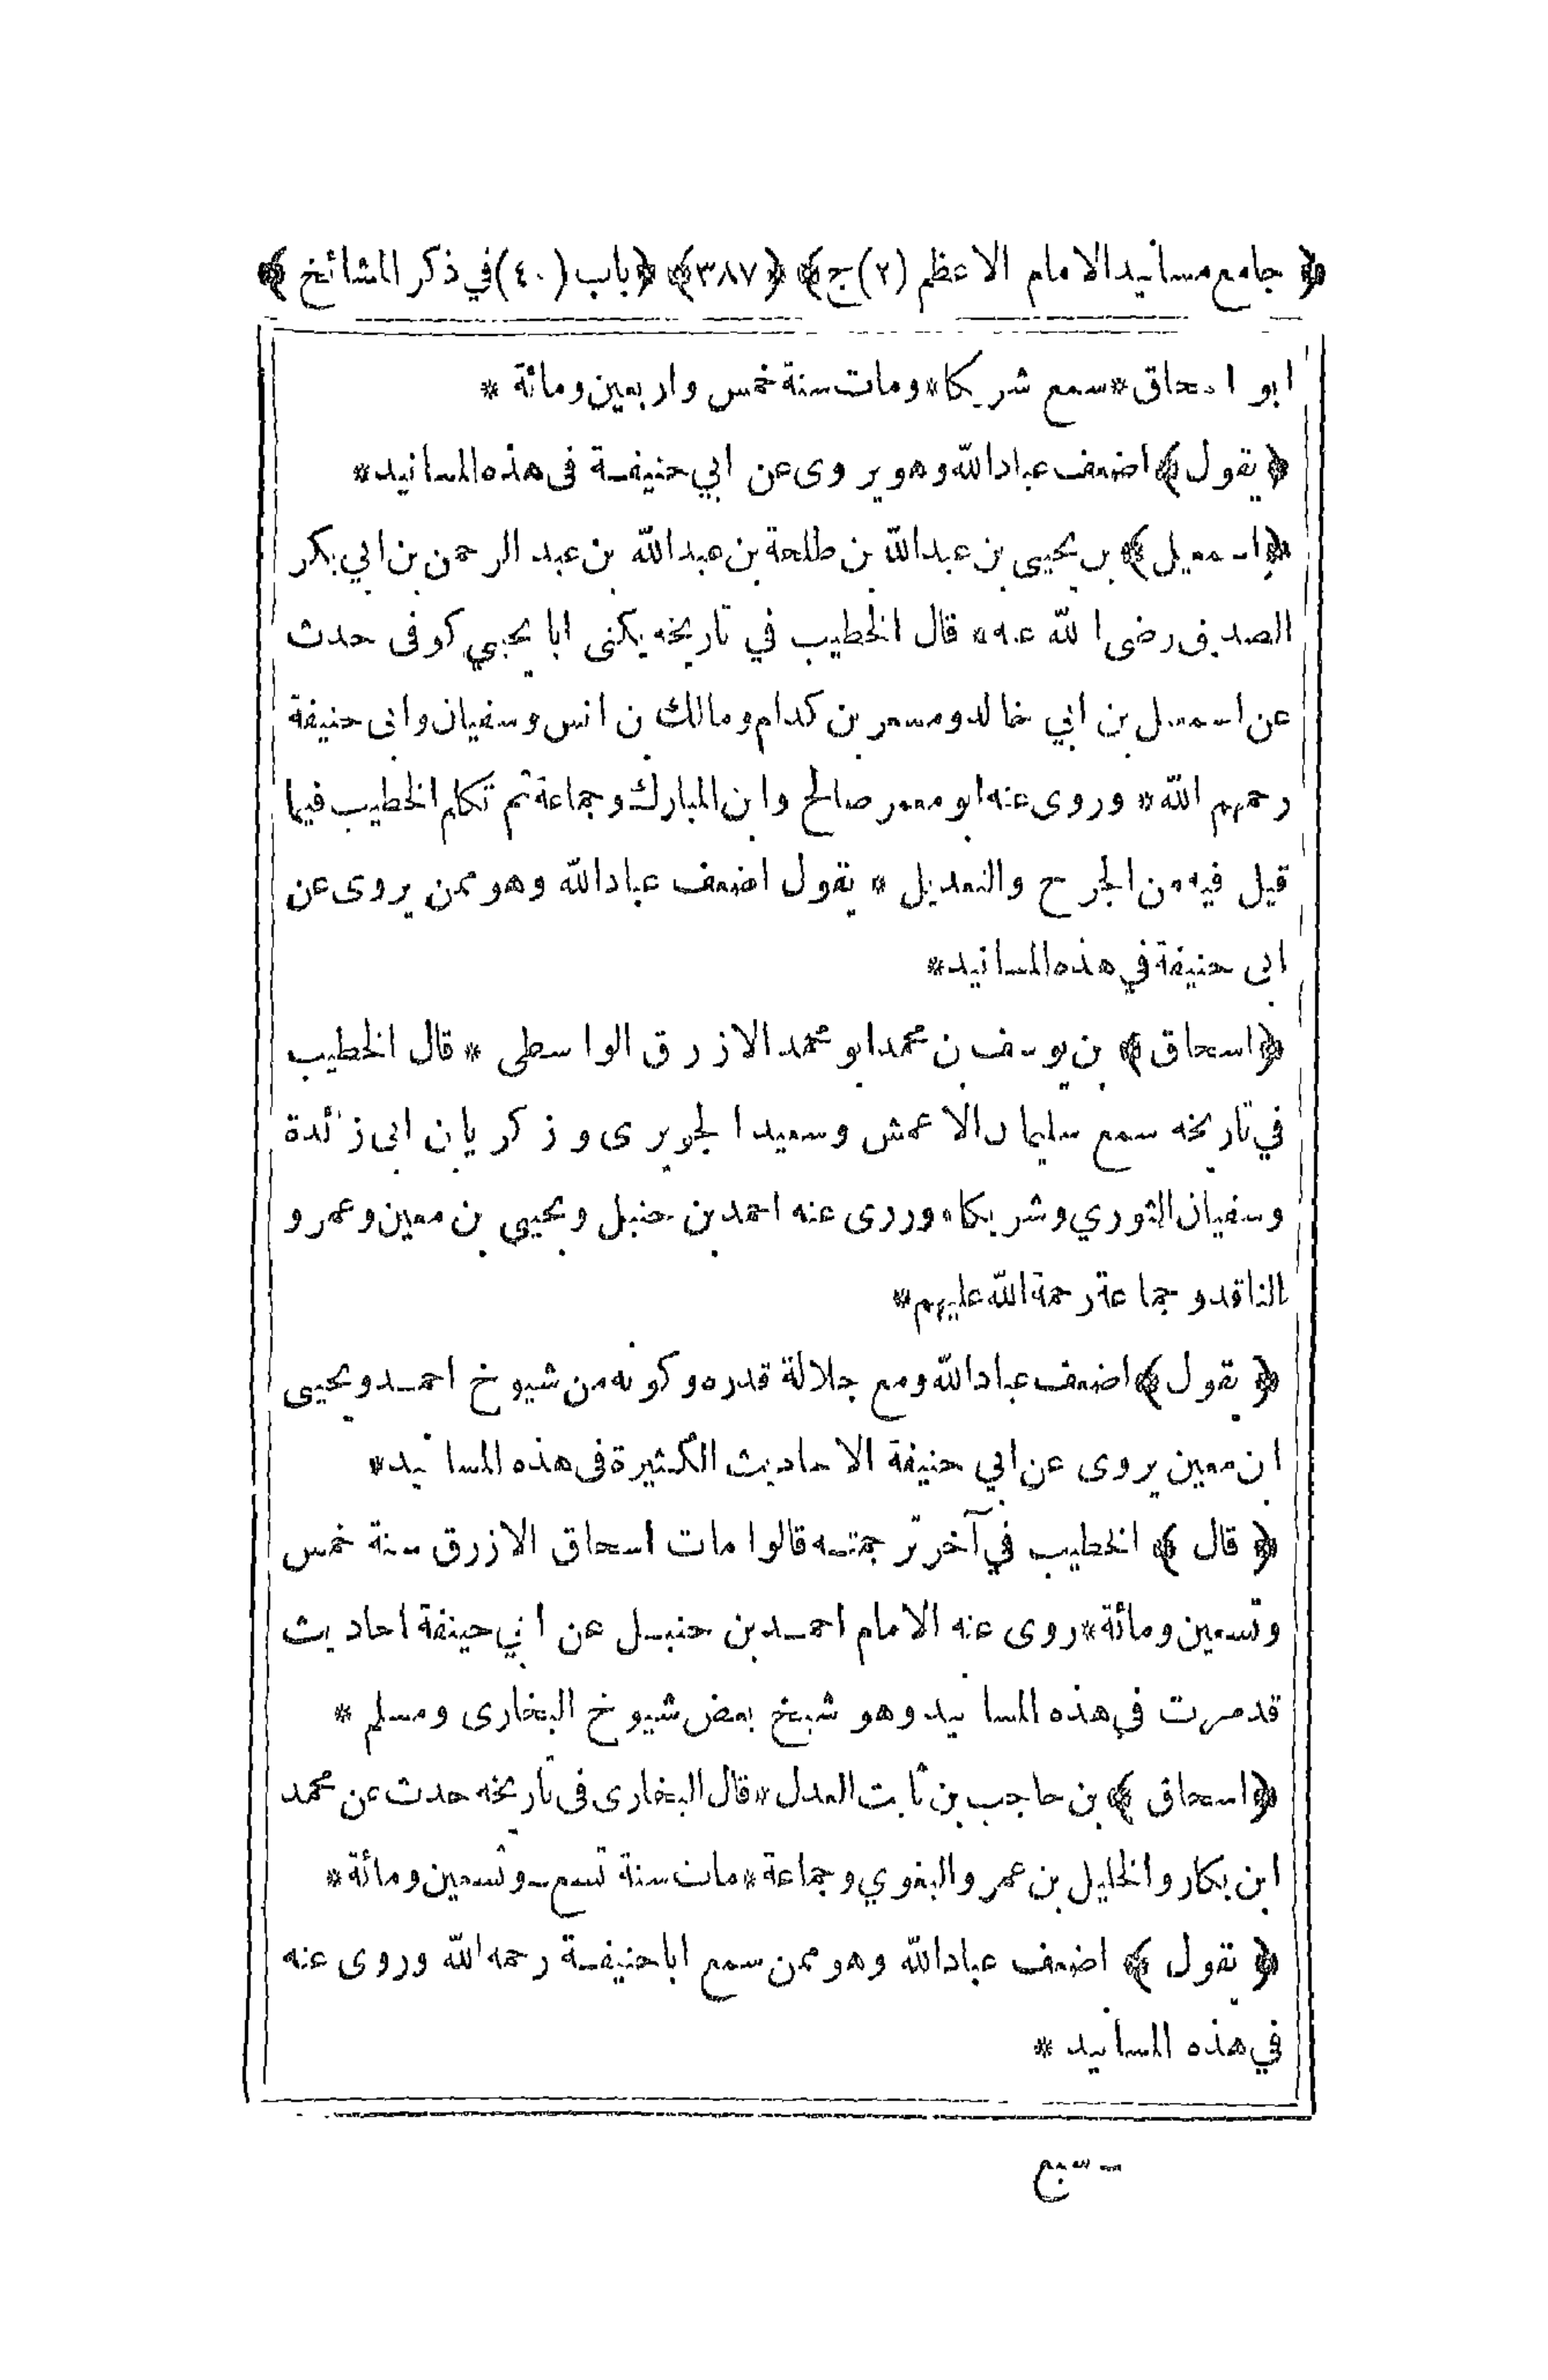 ﴿ جامع مسانيد الامام الاعظم (٢) ج﴾ ﴿٣٨٧﴾ ﴿باب (٤٠) في ذكر المشائخ ﴾
ابو اسحاق * سمع شريكا * ومات سنة خمس واربعين ومائة *
﴿يقول﴾ اضعف عباد الله وهو يروى عن ابي حنيفة فى هذه المسانيد *
﴿اسمعيل﴾ بن يحيى بن عبد الله بن طلحة بن عبد الله بن عبد الرحمن بن ابي بكر
الصديق رضى الله عنه * قال الخطيب في تاريخه يكنى ابا يحيي كوفى حدث
عن اسمعيل بن ابي خالد ومسعر بن كدام ومالك بن انس وسفيان وابى حنيفة
رحمهم الله * وروى عنه ابو معمر صالح وابن المبارك وجماعة ثم تكلم الخطيب فيما
قيل فيه من الجرح والتعديل * يقول اضعف عباد الله وهو ممن يروى عن
ابى حنيفة في هذه المسانيد *
﴿اسحاق﴾ بن يوسف بن محمد ابو محمد الازرق الواسطى * قال الخطيب
في تاريخه سمع سليمان الاعمش وسعيد الجريرى و زكريا بن ابى زائدة
وسفيان الثوري وشريكا * وروى عنه احمد بن حنبل ويحيى بن معين وعمرو
الناقد وجماعة رحمة الله عليهم *
﴿ يقول﴾ اضعف عباد الله ومع جلالة قدره وكونه من شيوخ احمد ويحيى
ابن معين يروى عن ابي حنيفة الاحاديث الكثيرة فى هذه المسانيد *
﴿ قال ﴾ الخطيب في آخر ترجمته قالوا مات اسحاق الازرق سنة خمس
وتسعين ومائة * روى عنه الامام احمد بن حنبل عن ابي حنيفة احاديث
قد مرت في هذه المسانيد وهو شيخ بعض شيوخ البخارى ومسلم *
﴿اسحاق ﴾ بن حاجب بن ثابت العدل * قال البخارى فى تاريخه حدث عن محمد
ابن بكار والخليل بن عمر والبغوي وجماعة * مات سنة تسع وتسعين ومائة *
﴿ يقول ﴾ اضعف عباد الله وهو ممن سمع ابا حنيفة رحمه الله وروى عنه
في هذه المسانيد *